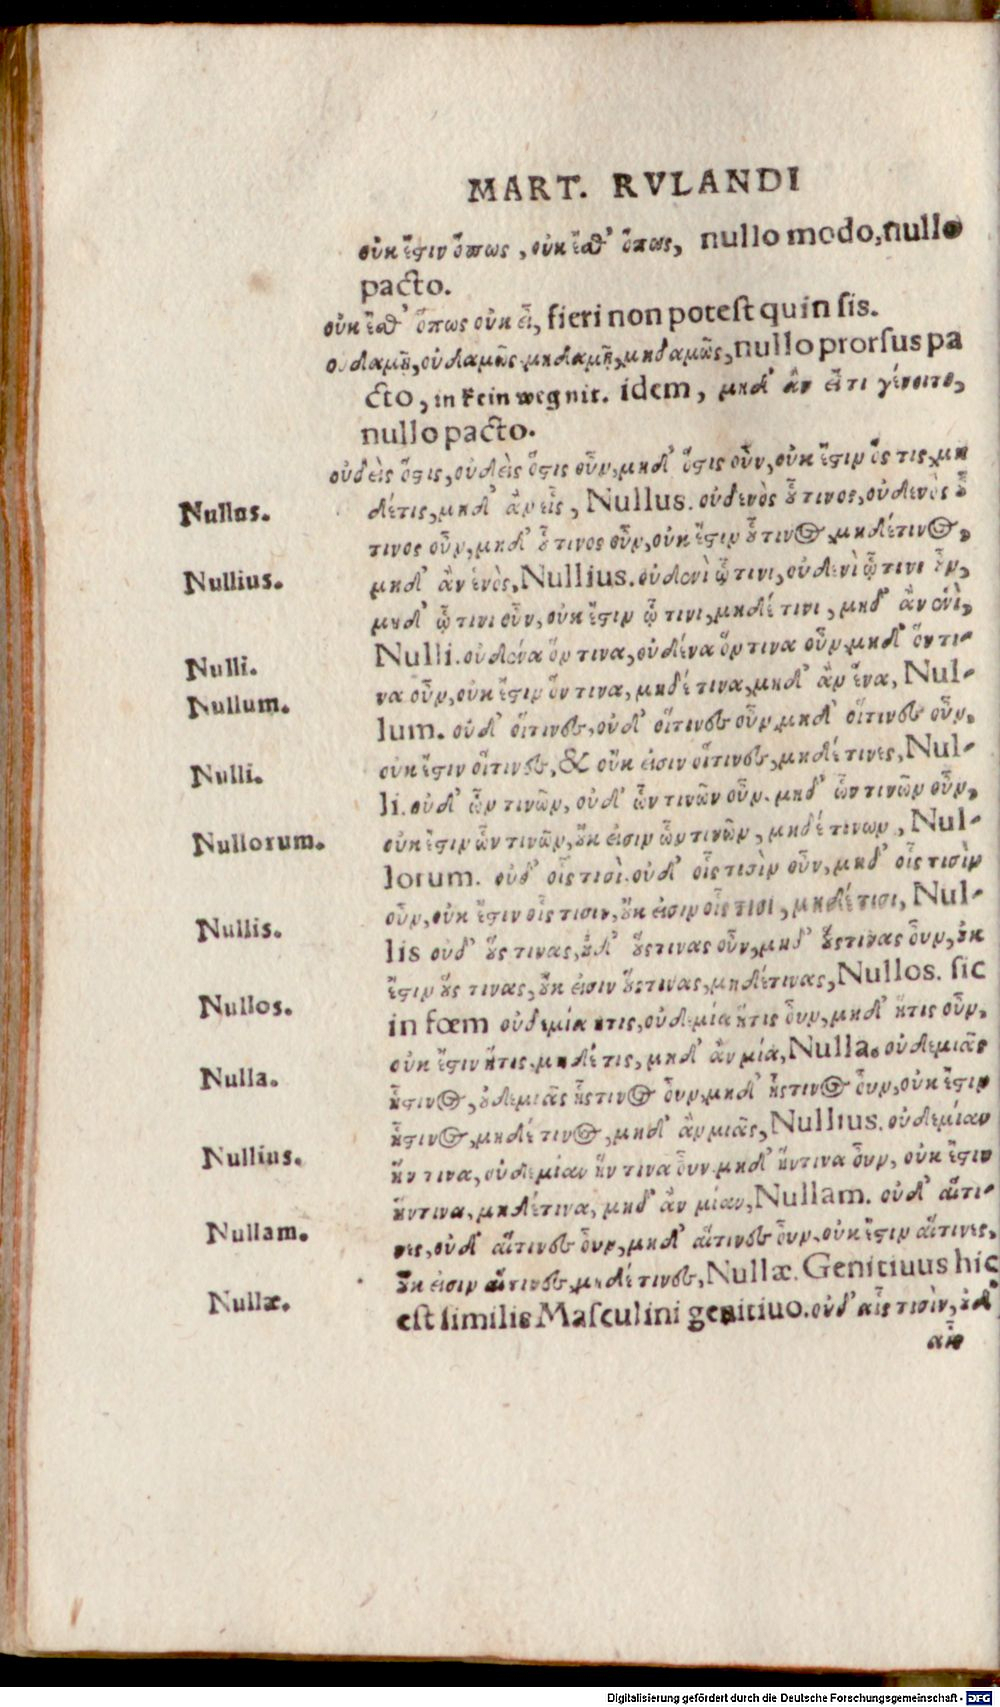 MART. RVLANDI
οὐκ ἔϛιν ὅπως, οὐκ ἔσθ’ ὅπως, nullo modo, nullo
pacto.
οὐκ ἔσθ’ ὅπως οὐκ εἶ, fieri non poteſt quin ſis.
οὐδαμῆ, οὐδαμῶς, μηδαμῆ, μηδαμῶς, nullo prorſus pa
cto, in kein weg nit. idem, μηδ’ ἂν εἴ τι γένοιτο,
nullo pacto.
οὐδεὶς ὅϛις, οὐδεὶς ὅϛις οὖν, μηδ’ ὅϛις οὖν, οὐκ ἔϛιν ὅς τις, μη
δέτις, μηδ’ ἂν εἷς, Nullus. οὐδενὸς ȣ̔͂ τινος, οὐδενὸς ȣ̔͂
Nullus.
τινος οὖν, μηδ’ ȣ̔͂ τινος οὖν, οὐκ ἔϛιν ȣ̔͂ τινος, μηδέτινος,
μηδ’ ἂν ἑνὸς, Nullius. οὐδενὶ ᾧ τινι, οὐδενὶ ᾧ τινι οὖν,
Nullius.
μηδ’ ᾧ τινι οὖν, οὐκ ἔϛιν ᾧ τινι, μηδέ τινι, μηδ’ ἂν ἑνὶ,
Nulli. οὐδένα ὅν τινα, οὐδένα ὅν τινα οὖν, μηδ’ ὅν τι-
Nulli.
να οὖν, οὐκ ἔϛιν ὅν τινα, μηδέ τινα, μηδ’ ἂν ἕνα, Nul-
Nullum.
lum. οὐδ’ οἵτινες, οὐδ’ οἵτινες οὖν, μηδ’ οἵτινες οὖν,
οὐκ ἔϛιν οἵτινες, & οὔκ εἰσιν οἵτινες, μηδέ τινες, Nul-
Nulli.
li. οὐδ’ ὧν τινῶν, οὐδ’ ὧν τινῶν οὖν, μηδ’ ὧν τινῶν οὖν,
οὐκ ἔϛιν ὧν τινῶν, ȣ̓́κ εἰσιν ὧν τινῶν, μηδέ τινων, Nul-
Nullorum.
lorum. οὐδ’ οἷς τισὶ, οὐδ’ οἷς τισὶν οὖν, μηδ’ οἷς τισὶν
οὖν, οὐκ ἔϛιν οἷς τισιν, ȣ̓́κ εἰσιν οἷς τισι, μηδέ τισι, Nul-
Nullis.
lis οὐδ’ ȣ̔́ς τινας, ȣ̓δ’ ȣ̔́ςτινας οὖν, μηδ’ ȣ̔́ςτινας οὖν, ȣ̓κ
ἔϛιν ȣ̔́ς τινας, ȣ̓́κ εἰσιν ȣ̔́ςτινας, μηδέτινας, Nullos. ſic
Nullos.
in fœm οὐδεμία ἥτις, οὐδεμία ἥτις οὖν, μηδ’ ἥτις οὖν,
οὐκ ἔϛιν ἥτις, μηδέ τις, μηδ’ ἂν μία, Nulla. οὐδεμιᾶς
Nulla.
ἧϛινος, ȣ̓δεμιᾶς ἧςτινος οὖν, μηδ’ ἧςτινος οὖν, οὐκ ἔϛιν
ἧϛινος, μηδέ τινος, μηδ’ ἂν μιᾶς, Nullius. οὐδεμίαν
Nullius.
ἥν τινα, οὐδεμίαν ἥν τινα οὖν, μηδ’ ἥντινα οὖν, οὐκ ἔϛιν
ἥντινα, μηδέτινα, μηδ’ ἂν μίαν, Nullam. οὐδ’ αἵτι-
Nullam.
νες, οὐδ’ αἵτινες οὖν, μηδ’ αἵτινες οὖν, οὐκ ἔϛιν αἵτινες,
ȣ̓́κ εἰσιν αἵτινες, μηδέ τινες, Nullæ. Genitiuus hic
Nullæ.
eſt ſimilis Maſculini genitiuo. οὐδ’ αἷς τισὶν, ȣ̓δ’
αἷς
Digitalisierung gefördert durch die Deutsche Forschungsgemeinschaft - DFG